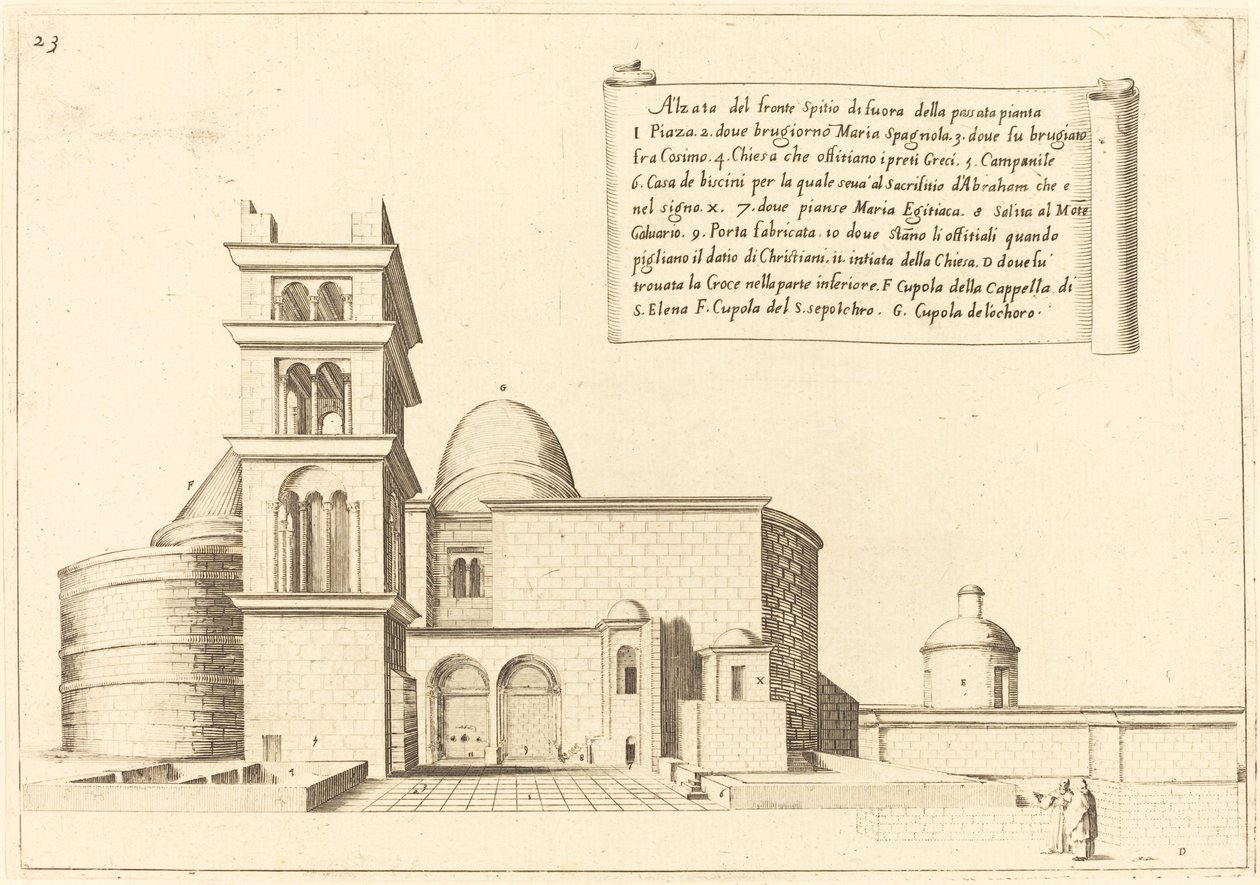 23
Alzata del fronte Spitio di fuora della passata pianta
1 Piaza. 2. doue brugiorno Maria Spagnola. 3. doue fu brugiato
fra Cosimo. 4. Chiesa che offitiano i preti Greci. 5. Campanile
6. Casa de biscini per la quale seua al Sacrifitio d'Abraham che e
nel signo. X. 7. doue pianse Maria Egitiaca. 8 Salita al Mōte
Caluario. 9. Porta fabricata. 10 doue stāno li offitiali quando
pigliano il datio di Christiani. 11. intiata della Chiesa. D doue fu
trouata la Croce nella parte inferiore. F Cupola della Cappella di
S. Elena F. Cupola del S. sepolchro. G. Cupola de lochoro.
G
F
E
X
4
11
9
8
7
1
6
D